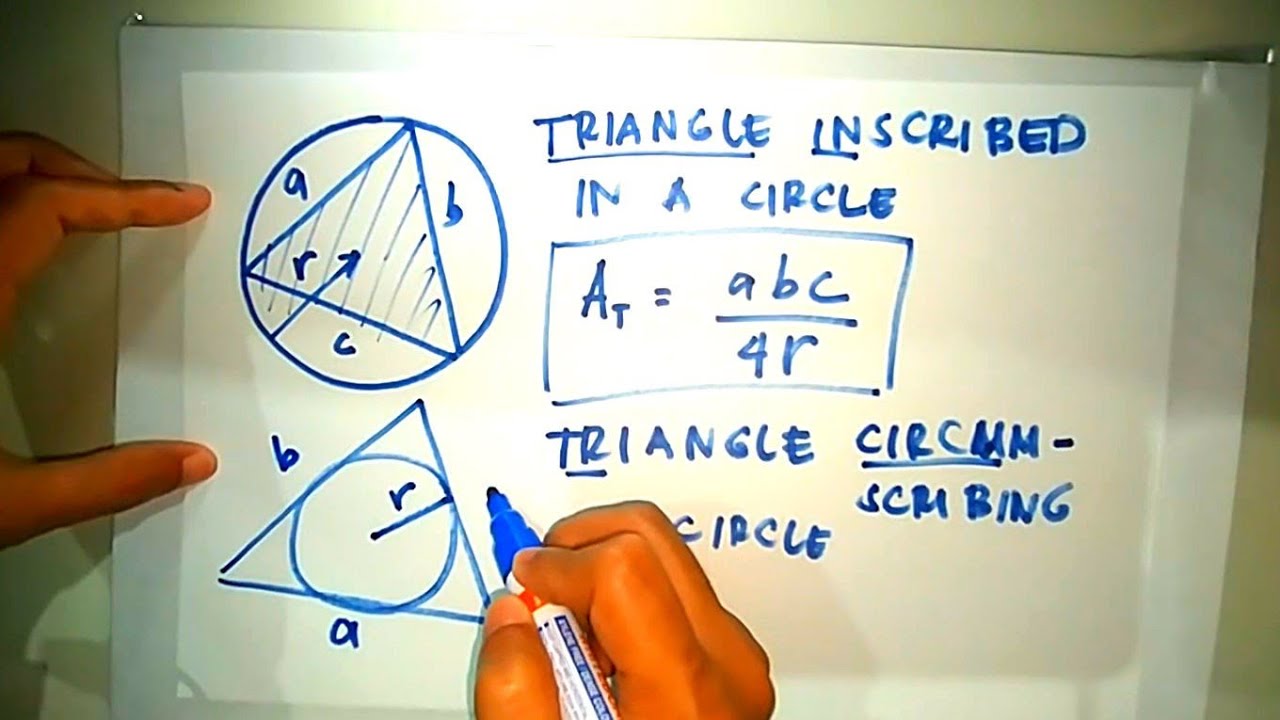 TRIANGLE INSCRIBED
IN A CIRCLE
a
b
r
c
A_T = abc / 4r
TRIANGLE CIRCUM-
SCRIBING
CIRCLE
b
r
a